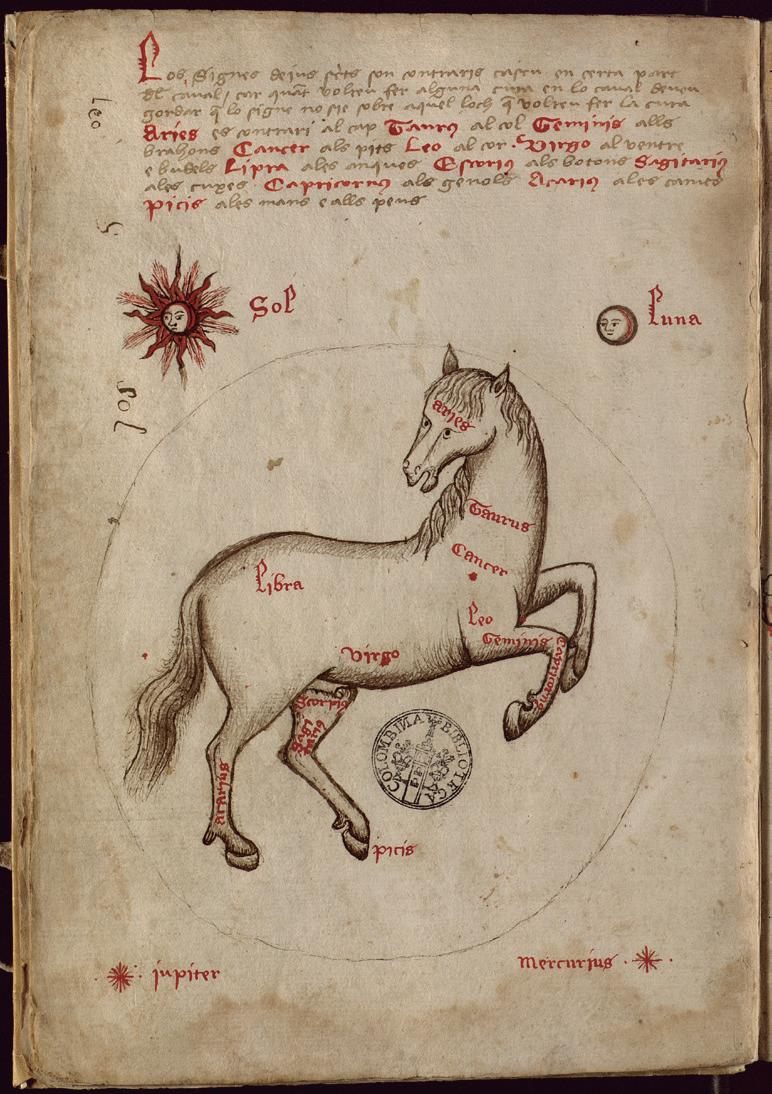 Los Signes dejus scrits son contraris cascu en certa part
del caval, car quant volreu fer alguna cura en lo caval deveu
gordar q̄ lo signe no sie sobre aquel loch q̄ volreu fer la cura
Aries es contrari al cap Taurꝯ al col Geminis alls
brahons Cancer als pits Leo al cor · Virgo al ventre
e budels Lipra ales anques Escorpiꝯ als botons Sagitariꝯ
ales cuxes · Capricornꝯ als genols Acariꝯ ales cames
Picis ales mans e alls peus
leo
Sol
Luna
sol
aries
Taurus
Cancer
Libra
Leo
Geminis
Capricornꝯ
Virgo
Scorpiꝯ
Sagi
tariꝯ
acarius
picis
BIBLIOTECA COLOMBINA
jupiter
Mercurius